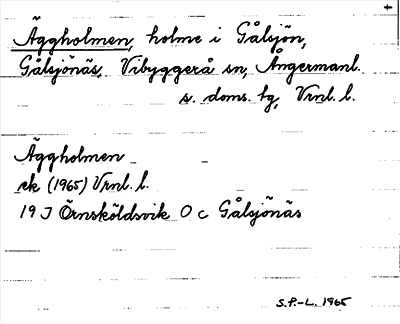 Äggholmen, holme i Gålsjön,
Gålsjönäs, Vibyggerå sn, Ångermanl.
s. doms. tg, Vrnl. l.
Äggholmen
ek (1965) Vrnl. l.
19 J Örnsköldsvik O c Gålsjönäs
S.P.-L. 1965